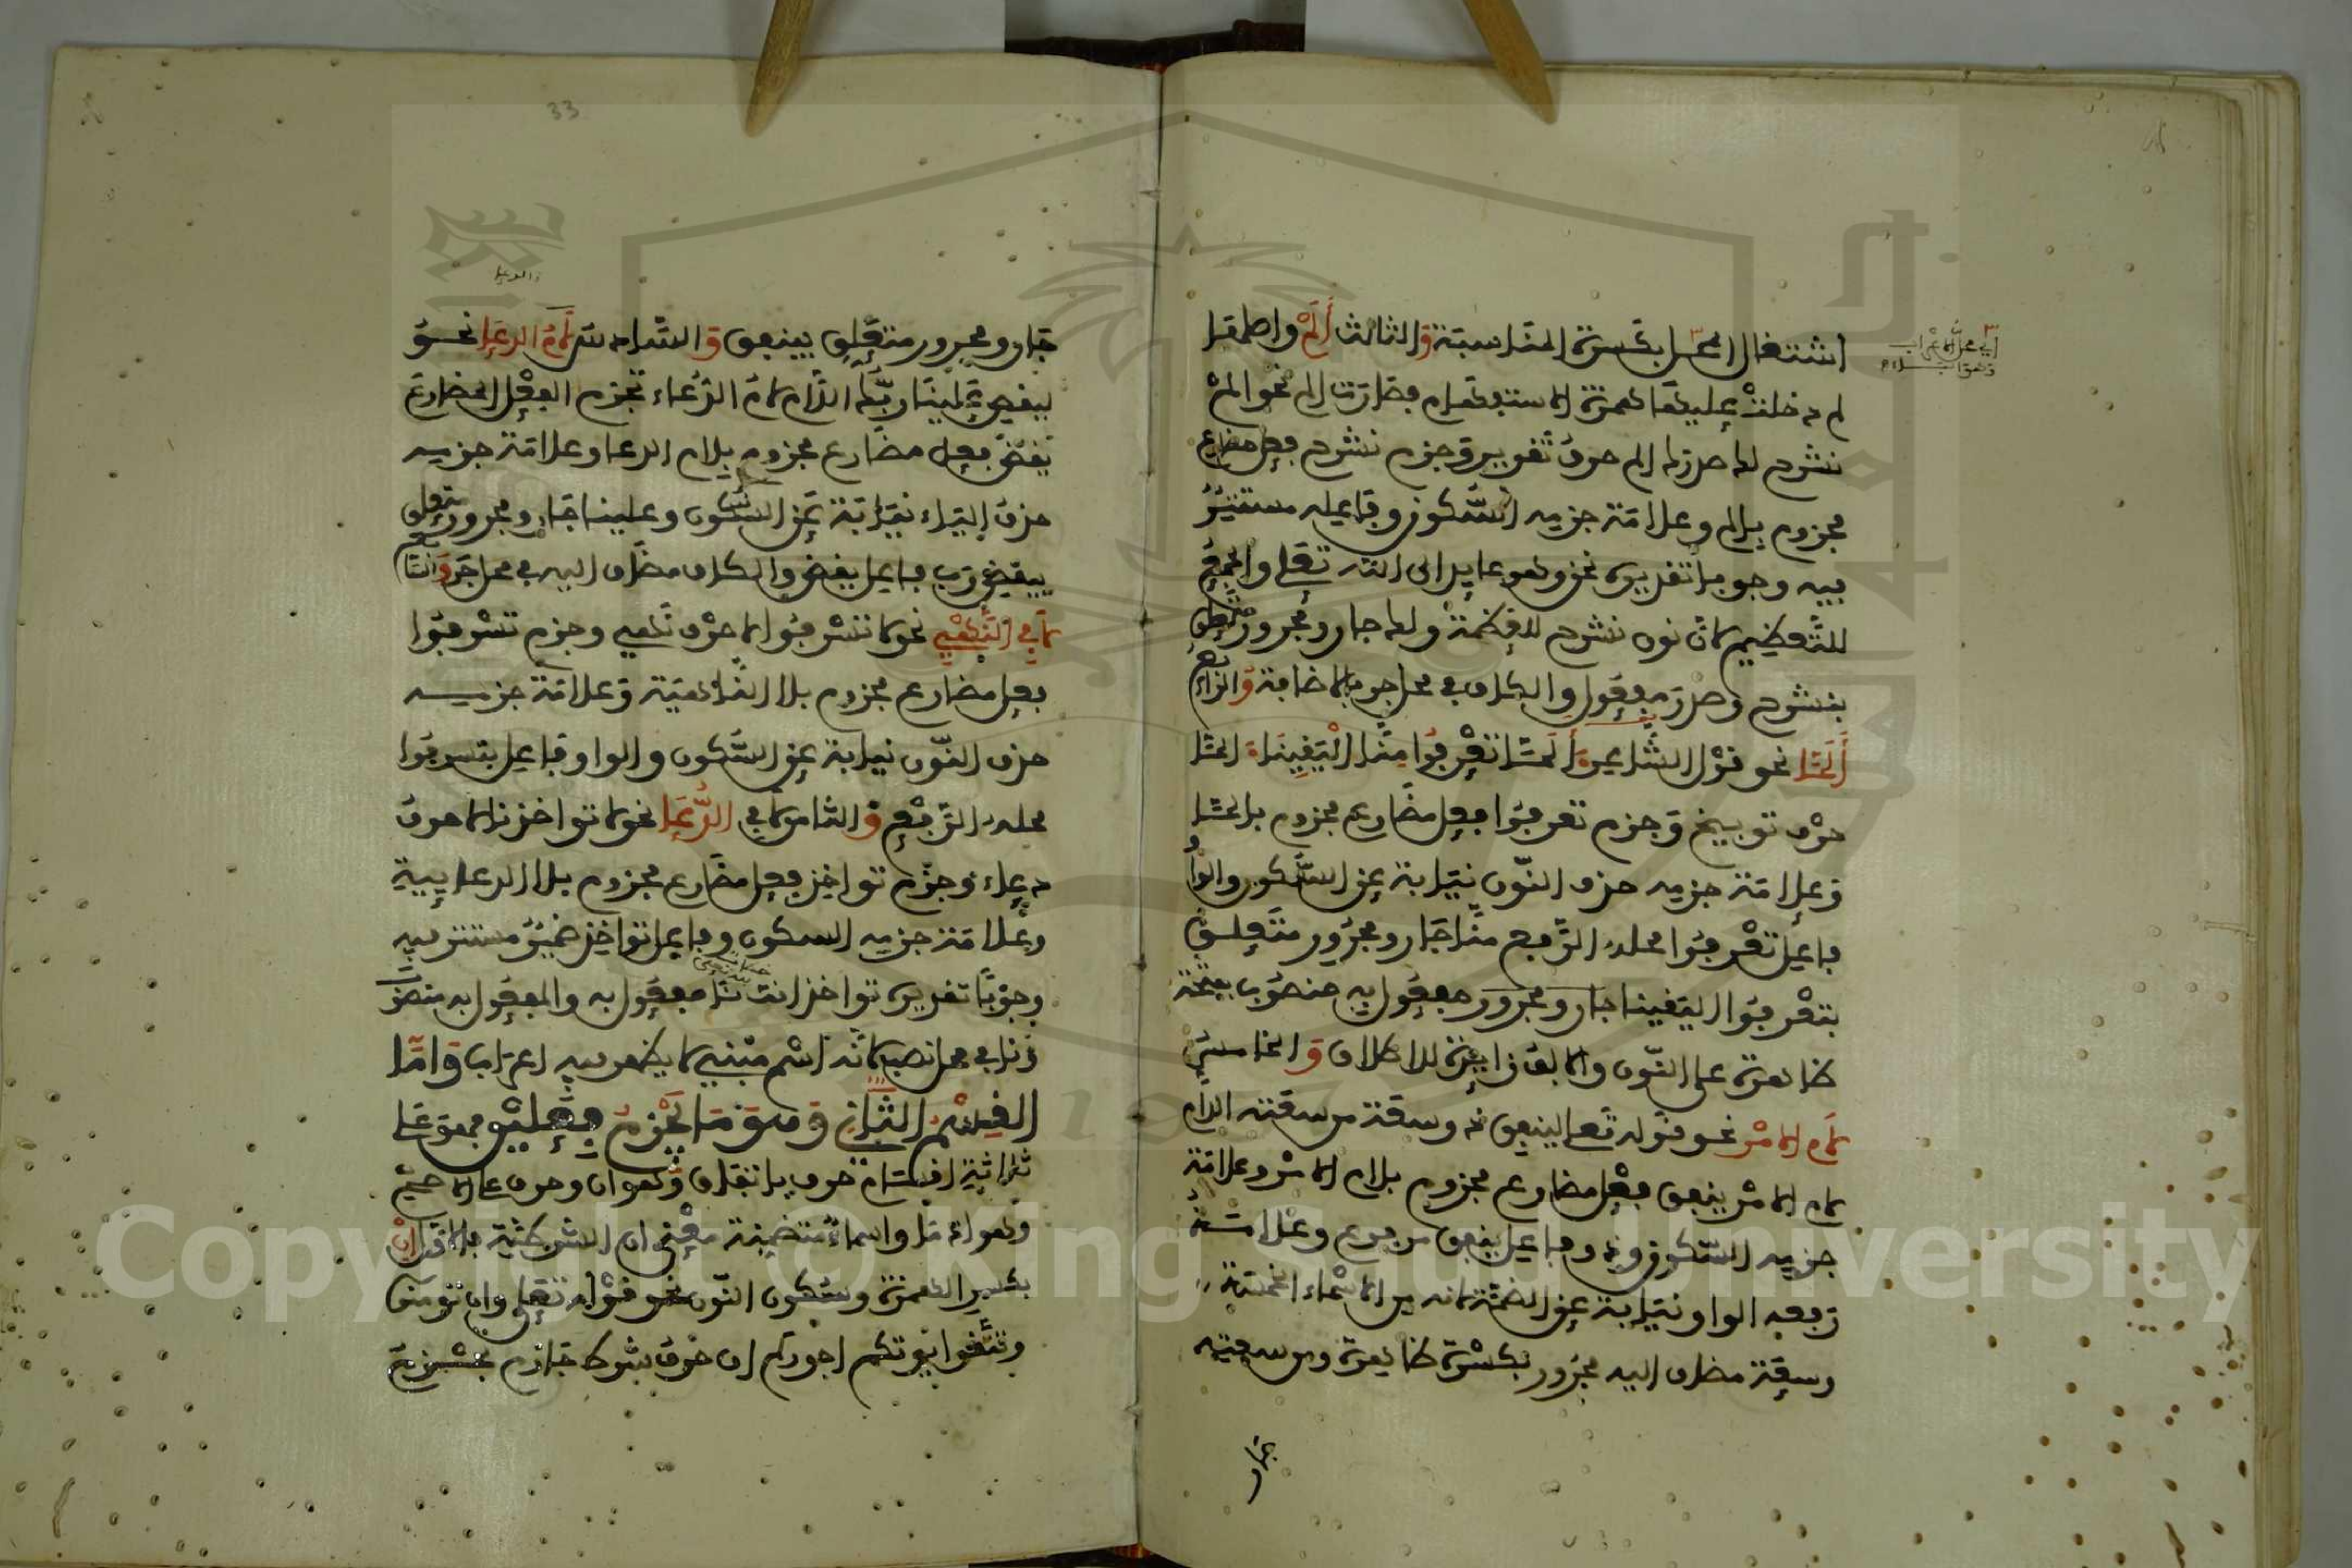 اشتغال المحل بكسرة المناسبة والثالث ألم واصلها
لم دخلت عليها همزة الاستفهام فصارت الم نحو الم
نشرح لك صدرك الم حرف تقرير وجزم نشرح فعل مضارع
مجزوم بالم وعلامة جزمه السكون وفاعله مستتر
فيه وجوبا تقديره نحن وهو عايد الى الله تعلى والجمع
للتعظيم لان نون نشرح للعظمة ولك جار ومجرور متعلق
بنشرح وصدر مفعول والكاف في محل جر بالاضافة والرابع
ألمّا نحو قول الشاعر ألمّا تعرفوا منا اليقينا المّا
حرف توبيخ وجزم تعرفوا فعل مضارع مجزوم بالمّا
وعلامة جزمه حذف النون نيابة عن السكون والواو
فاعل تعرفوا محله الرفع منا جار ومجرور متعلق
بتعرفوا اليقينا جار ومجرور مفعول به منصوب بفتحة
ظاهرة على النون والالف زايدة للاطلاق والخامس
لام الامر نحو قوله تعلى لينفق ذو سعة من سعته اللام
لام الامر ينفق فعل مضارع مجزوم بلام الامر وعلامة
جزمه السكون وذو فاعل ينفق مرفوع وعلامة
رفعه الواو نيابة عن الضمة لانه من الاسماء الخمسة
وسعة مضاف اليه مجرور بكسرة ظاهرة ومن سعته
جار
جار ومجرور متعلق بينفق والسادس لام الدعا نحو
ليقض علينا ربك اللام لام الدعاء تجزم الفعل المضارع
يقض فعل مضارع مجزوم بلام الدعا وعلامة جزمه
حذف الياء نيابة عن السكون وعلينا جار ومجرور متعلق
بيقض رب فاعل يقض والكاف مضاف اليه في محل جر والسابع
لا في النهي نحو لا تسرفوا لا حرف نهي وجزم تسرفوا
فعل مضارع مجزوم بلا الناهية وعلامة جزمه
حذف النون نيابة عن السكون والواو فاعل بتسرفوا
محله الرفع والثامن لا في الدعا نحو لا تواخذنا لا حرف
دعاء وجزم تواخذ فعل مضارع مجزوم بلا الدعايية
وعلامة جزمه السكون وفاعل تواخذ ضمير مستتر فيه
وجوبا تقديره تواخذ انت نا مفعول به والمفعول به منصوب
ونا في محل نصب لانه اسم مبني لا يظهر فيه اعراب واما
القسم الثاني وهو ما يجزم فعلين فهو على
ثلاثة اقسام حرف باتفاق وهو ان وحرف على الاصح
وهو اذ ما واسماء متضمنة معنى ان الشرطية فالاول ان
بكسر الهمزة وسكون النون نحو قوله تعلى وان تومنوا
وتتقوا يوتكم اجوركم ان حرف شرط جازم يجزم